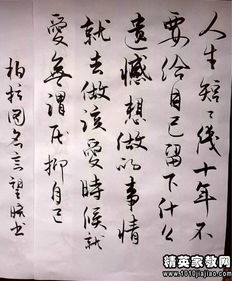 人生短々几十年不
要给自己留下什么
遗憾想做的事情
就去做该爱时候就
爱无谓压抑自己
柏拉图名言望
精英家教网
www.1010jiajiao.com